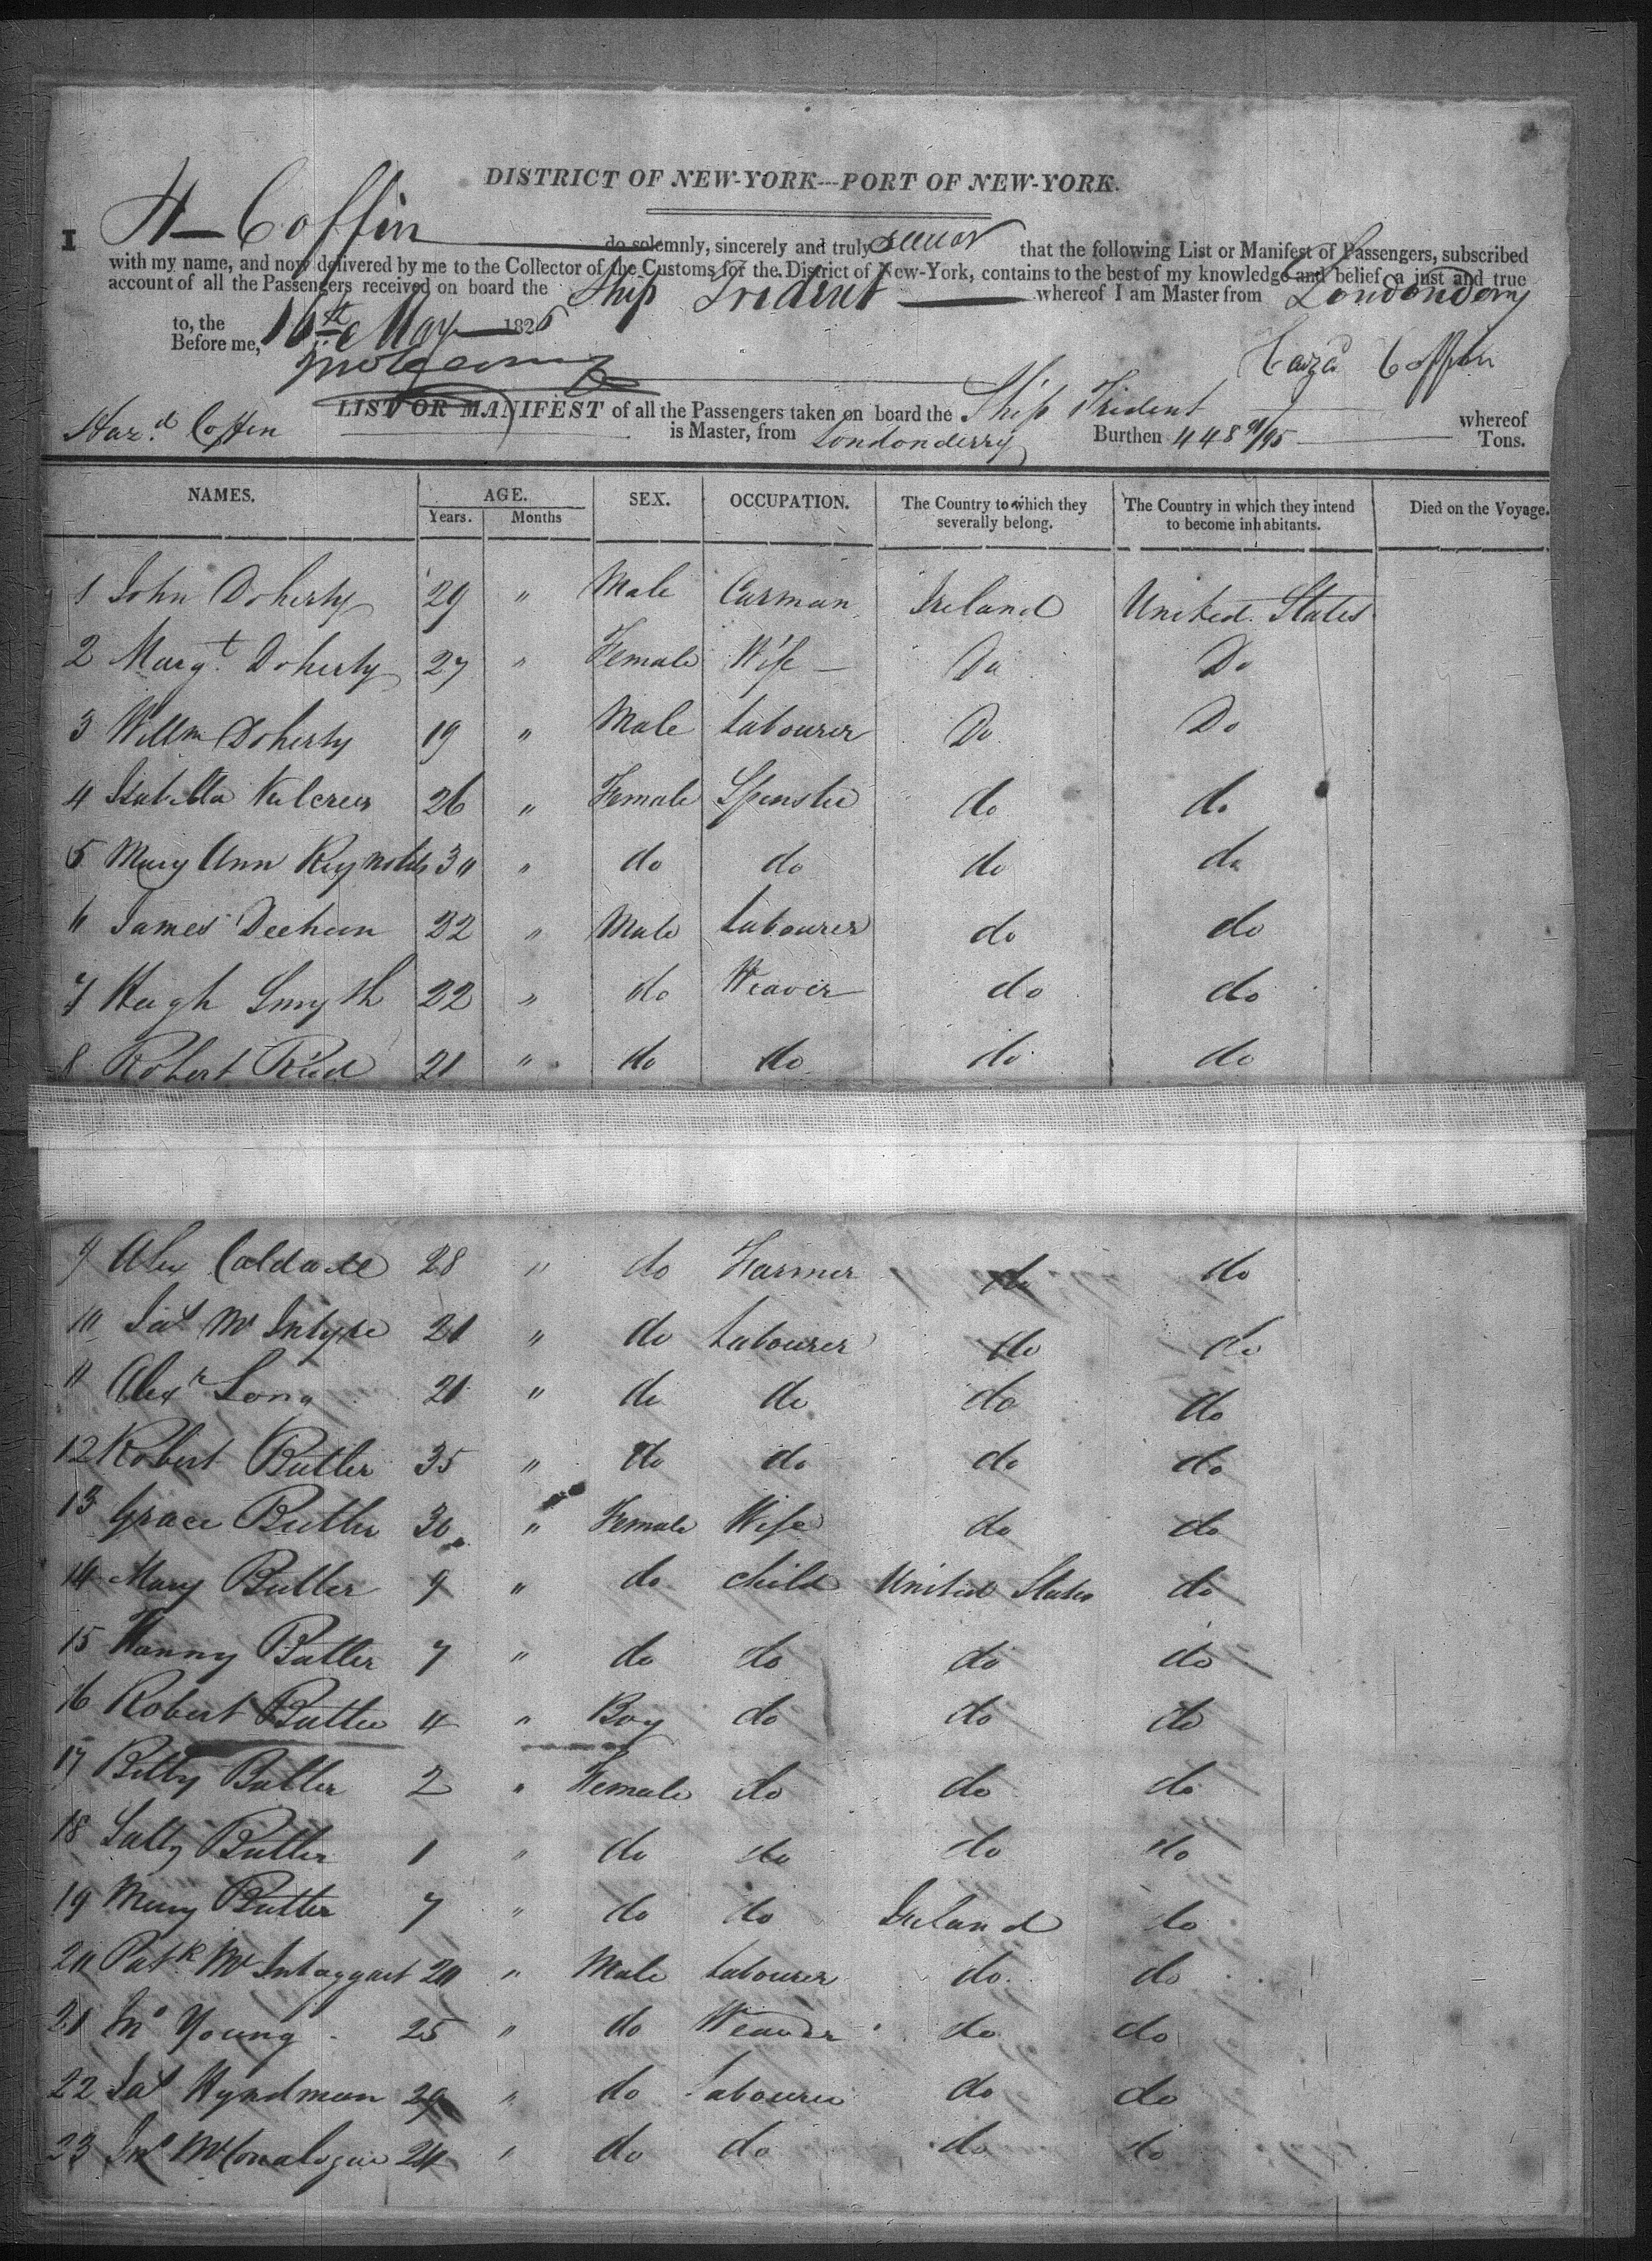 DISTRICT OF NEW-YORK---PORT OF NEW-YORK.
I H— Coffin do solemnly, sincerely and truly swear that the following List or Manifest of Passengers, subscribed
with my name, and now delivered by me to the Collector of the Customs for the District of New-York, contains to the best of my knowledge and belief a just and true
account of all the Passengers received on board the Ship Trident whereof I am Master from Londonderry
to, the 16th May 182
Before me,
Coffin
LIST OR MANIFEST of all the Passengers taken on board the Ship Trident whereof
Haz.d Coffin is Master, from Londonderry Burthen 448 91/95 Tons.
NAMES. AGE. SEX. OCCUPATION. The Country to which they severally belong. The Country in which they intend to become inhabitants. Died on the Voyage.
Years. Months
1 John Doherty 29 " Male Carman Ireland United States
2 Margt. Doherty 27 " Female Wife Do Do
3 Willm Doherty 19 " Male Labourer Do Do
4 Isabella 26 " Female Spinster do do
5 Mary Ann Reynolds 30 " do do do do
6 James Deehan 22 " Male Labourer do do
7 Hugh Smyth 22 " do Weaver do do
8 Robert Reid 21 " do do do do
9 Alex 28 " do Farmer do do
10 Jas Mc Intyre 21 " do Labourer do do
11 Alexr Long 21 " do do do do
12 Robert Butler 35 " do do do do
13 Grace Butler 30 " Female Wife do do
14 Mary Butler 9 " do child United States do
15 Butler 7 " do do do do
16 Robert Butler 4 " Boy do do do
17 Betty Butler 2 " Female do do do
18 Sally Butler 1 " do do do do
19 Mary Butler 7 " do do Ireland do
20 Patk Mc Intaggart 20 " Male Labourer do do
21 Jno Young 25 " do Weaver do do
22 Jas Hyndman 29 " do Labourer do do
23 Jno McConalogue 24 " do do do do